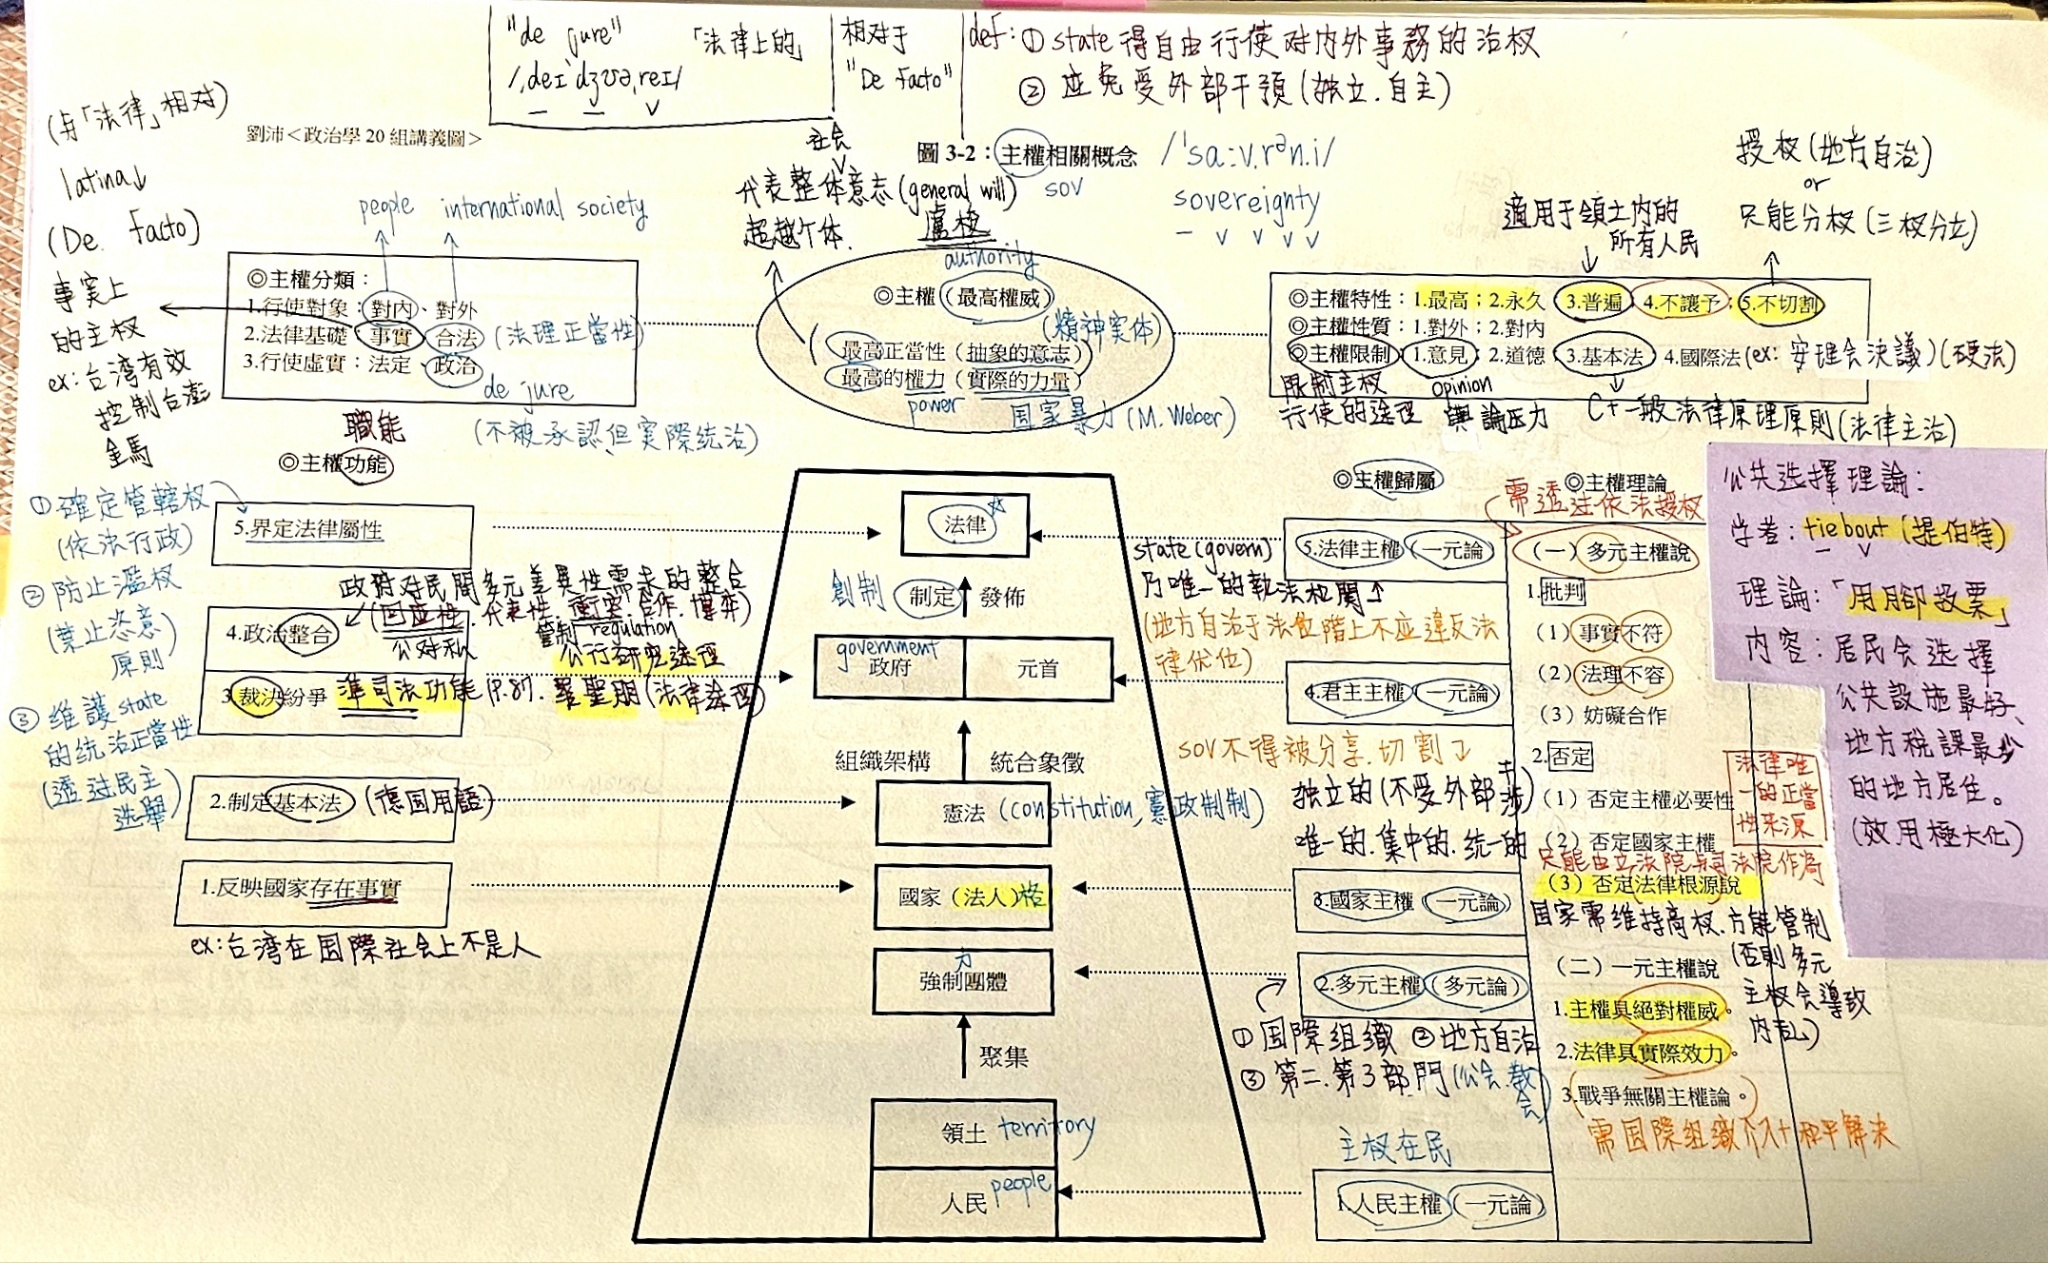 "de jure" 「法律上的」
/ˌdeɪˈdʒʊəˌreɪ/
相对于
"De facto"
def: ① state得自由行使对内外事務的治权
② 应免受外部干預(独立.自主)
(与「法律」相对)
latina↓
(De facto)
事実上
的主权
ex:台湾有效
控制台澎
金馬
劉沛<政治學 20 組講義圖>
圖 3-2:主權相關概念 /ˈsɑːv.rən.i/
sov
sovereignty
社会
代表整体意志(general will)
超越个体.
盧梭
授权(地方自治)
or
只能分权(三权分立)
適用于領土内的
所有人民
people international society
◎主權分類:
1.行使對象:對內、對外
2.法律基礎:事實、合法 (法理正當性)
3.行使虛實:法定、政治
de jure
(不被承認但実際統治)
authority
◎主權(最高權威)
(精神実体)
最高正當性(抽象的意志)
最高的權力(實際的力量)
power 国家暴力(M. Weber)
◎主權特性:1.最高;2.永久;3.普遍;4.不讓予;5.不切割
◎主權性質:1.對外;2.對內
◎主權限制:1.意見;2.道德;3.基本法;4.國際法(ex: 安理会決議)(硬法)
限制主权
行使的途徑
opinion
輿論压力
C+一般法律原理原則(法律主治)
職能
◎主權功能
①確定管轄权
(依法行政)
②防止濫权
(禁止恣意
原則)
③維護state
的统治正當性
(透过民主
选舉)
5.界定法律屬性
政府对民間多元差異性需求的整合
(回应性.代表性.衝突.合作.博弈)
4.政治整合
公对私
管制 regulation
公行研究途徑
3.裁決紛爭 準司法功能 P.87. 羅聖朋(法律途径)
2.制定基本法 (德国用語)
1.反映國家存在事實
ex:台湾在国際社会上不是人
法律
創制 制定 發佈
government
政府
元首
組織架構 統合象徵
憲法 (constitution, 憲政制制)
國家(法人)格
力
強制團體
聚集
領土 territory
人民 people
◎主權歸屬
5.法律主權(一元論)
state(govern)
乃唯一的執法机関↑
(地方自治于法位階上不应違反法
律优位)
4.君主主權(一元論)
sov不得被分享.切割↓
独立的(不受外部干涉)
唯一的.集中的.统一的
3.國家主權(一元論)
2.多元主權(多元論)
①国際组織 ②地方自治
③第二.第3部門(公会.教会)
主权在民
1.人民主權(一元論)
◎主權理論
需透过依法授权
(一)多元主權說
1.批判
(1)事實不符
(2)法理不容
(3)妨礙合作
2.否定
(1)否定主權必要性
(2)否定國家主權
法律唯
一的正當
性来源
只能由立法院与司法院作為
(3)否定法律根源說
国家需維持高权.方能管制
(否則多元
主权会導致
内乱)
(二)一元主權說
1.主權具絕對權威。
2.法律具實際效力。
3.戰爭無關主權論。
需国際组織介入+和平解決
公共选擇理論:
学者: tiebout(提伯特)
理論:「用腳投票」
内容: 居民会选擇
公共設施最好、
地方税課最少
的地方居住。
(效用極大化)